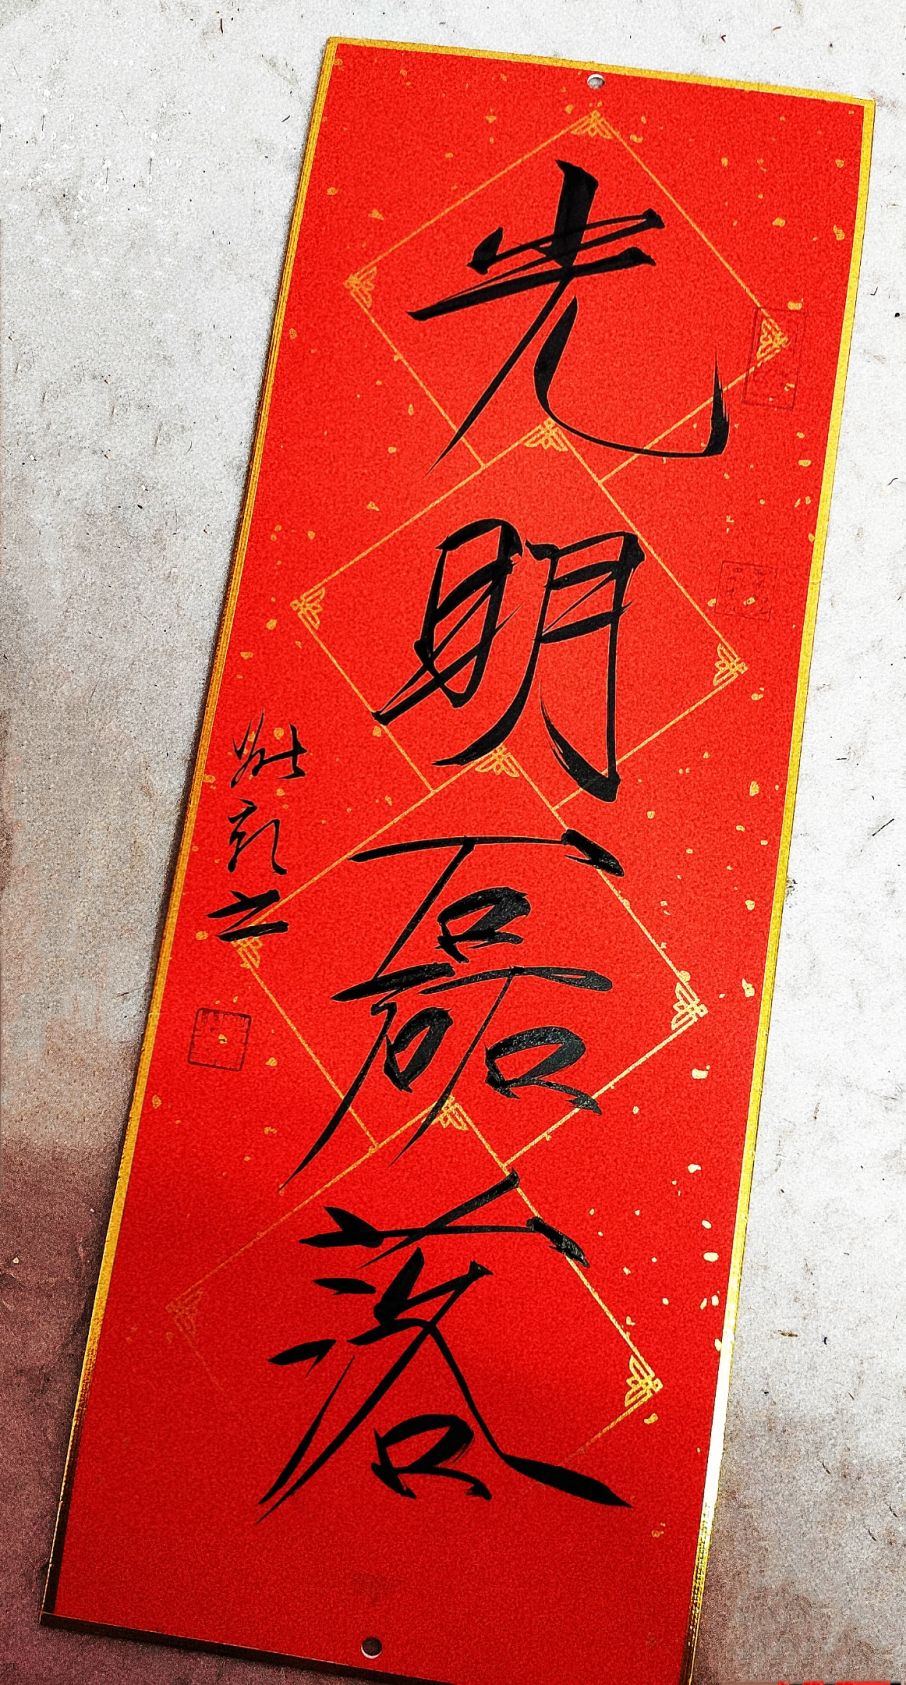 光明磊落